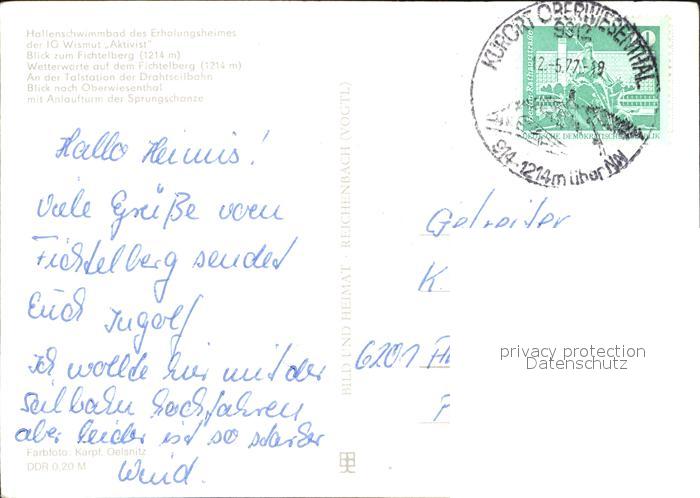 Hallenschwimmbad des Erholungsheimes
der IG Wismut „Aktivist"
Blick zum Fichtelberg (1214 m)
Wetterwarte auf dem Fichtelberg (1214 m)
An der Talstation der Drahtseilbahn
Blick nach Oberwiesenthal
mit Anlaufturm der Sprungschanze
Hallo Heinis!
Viele Grüße vom
Fichtelberg sendet
Euch Ingolf
Ich wollte hier mit der
Seilbahn hochfahren
aber leider ist so starker
Wind.
Farbfoto: Karpf, Oelsnitz
DDR 0,20 M
BILD UND HEIMAT · REICHENBACH (VOGTL)
KURORT OBERWIESENTHAL
9312
12.-5.77.-19
914-1214m über NN
10
DEUTSCHE DEMOKRATISCHE REPUBLIK
Gefreiter
K.
6201
privacy protection
Datenschutz